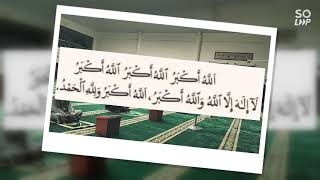 SO
LOOP
اَللَّهُ أَكْبَرُ اَللَّهُ أَكْبَرُ اَللَّهُ أَكْبَرُ
لَآ إِلَهَ إِلَّا اللَّهُ وَاللَّهُ أَكْبَرُ، اَللَّهُ أَكْبَرُ وَلِلَّهِ الْحَمْدُ.